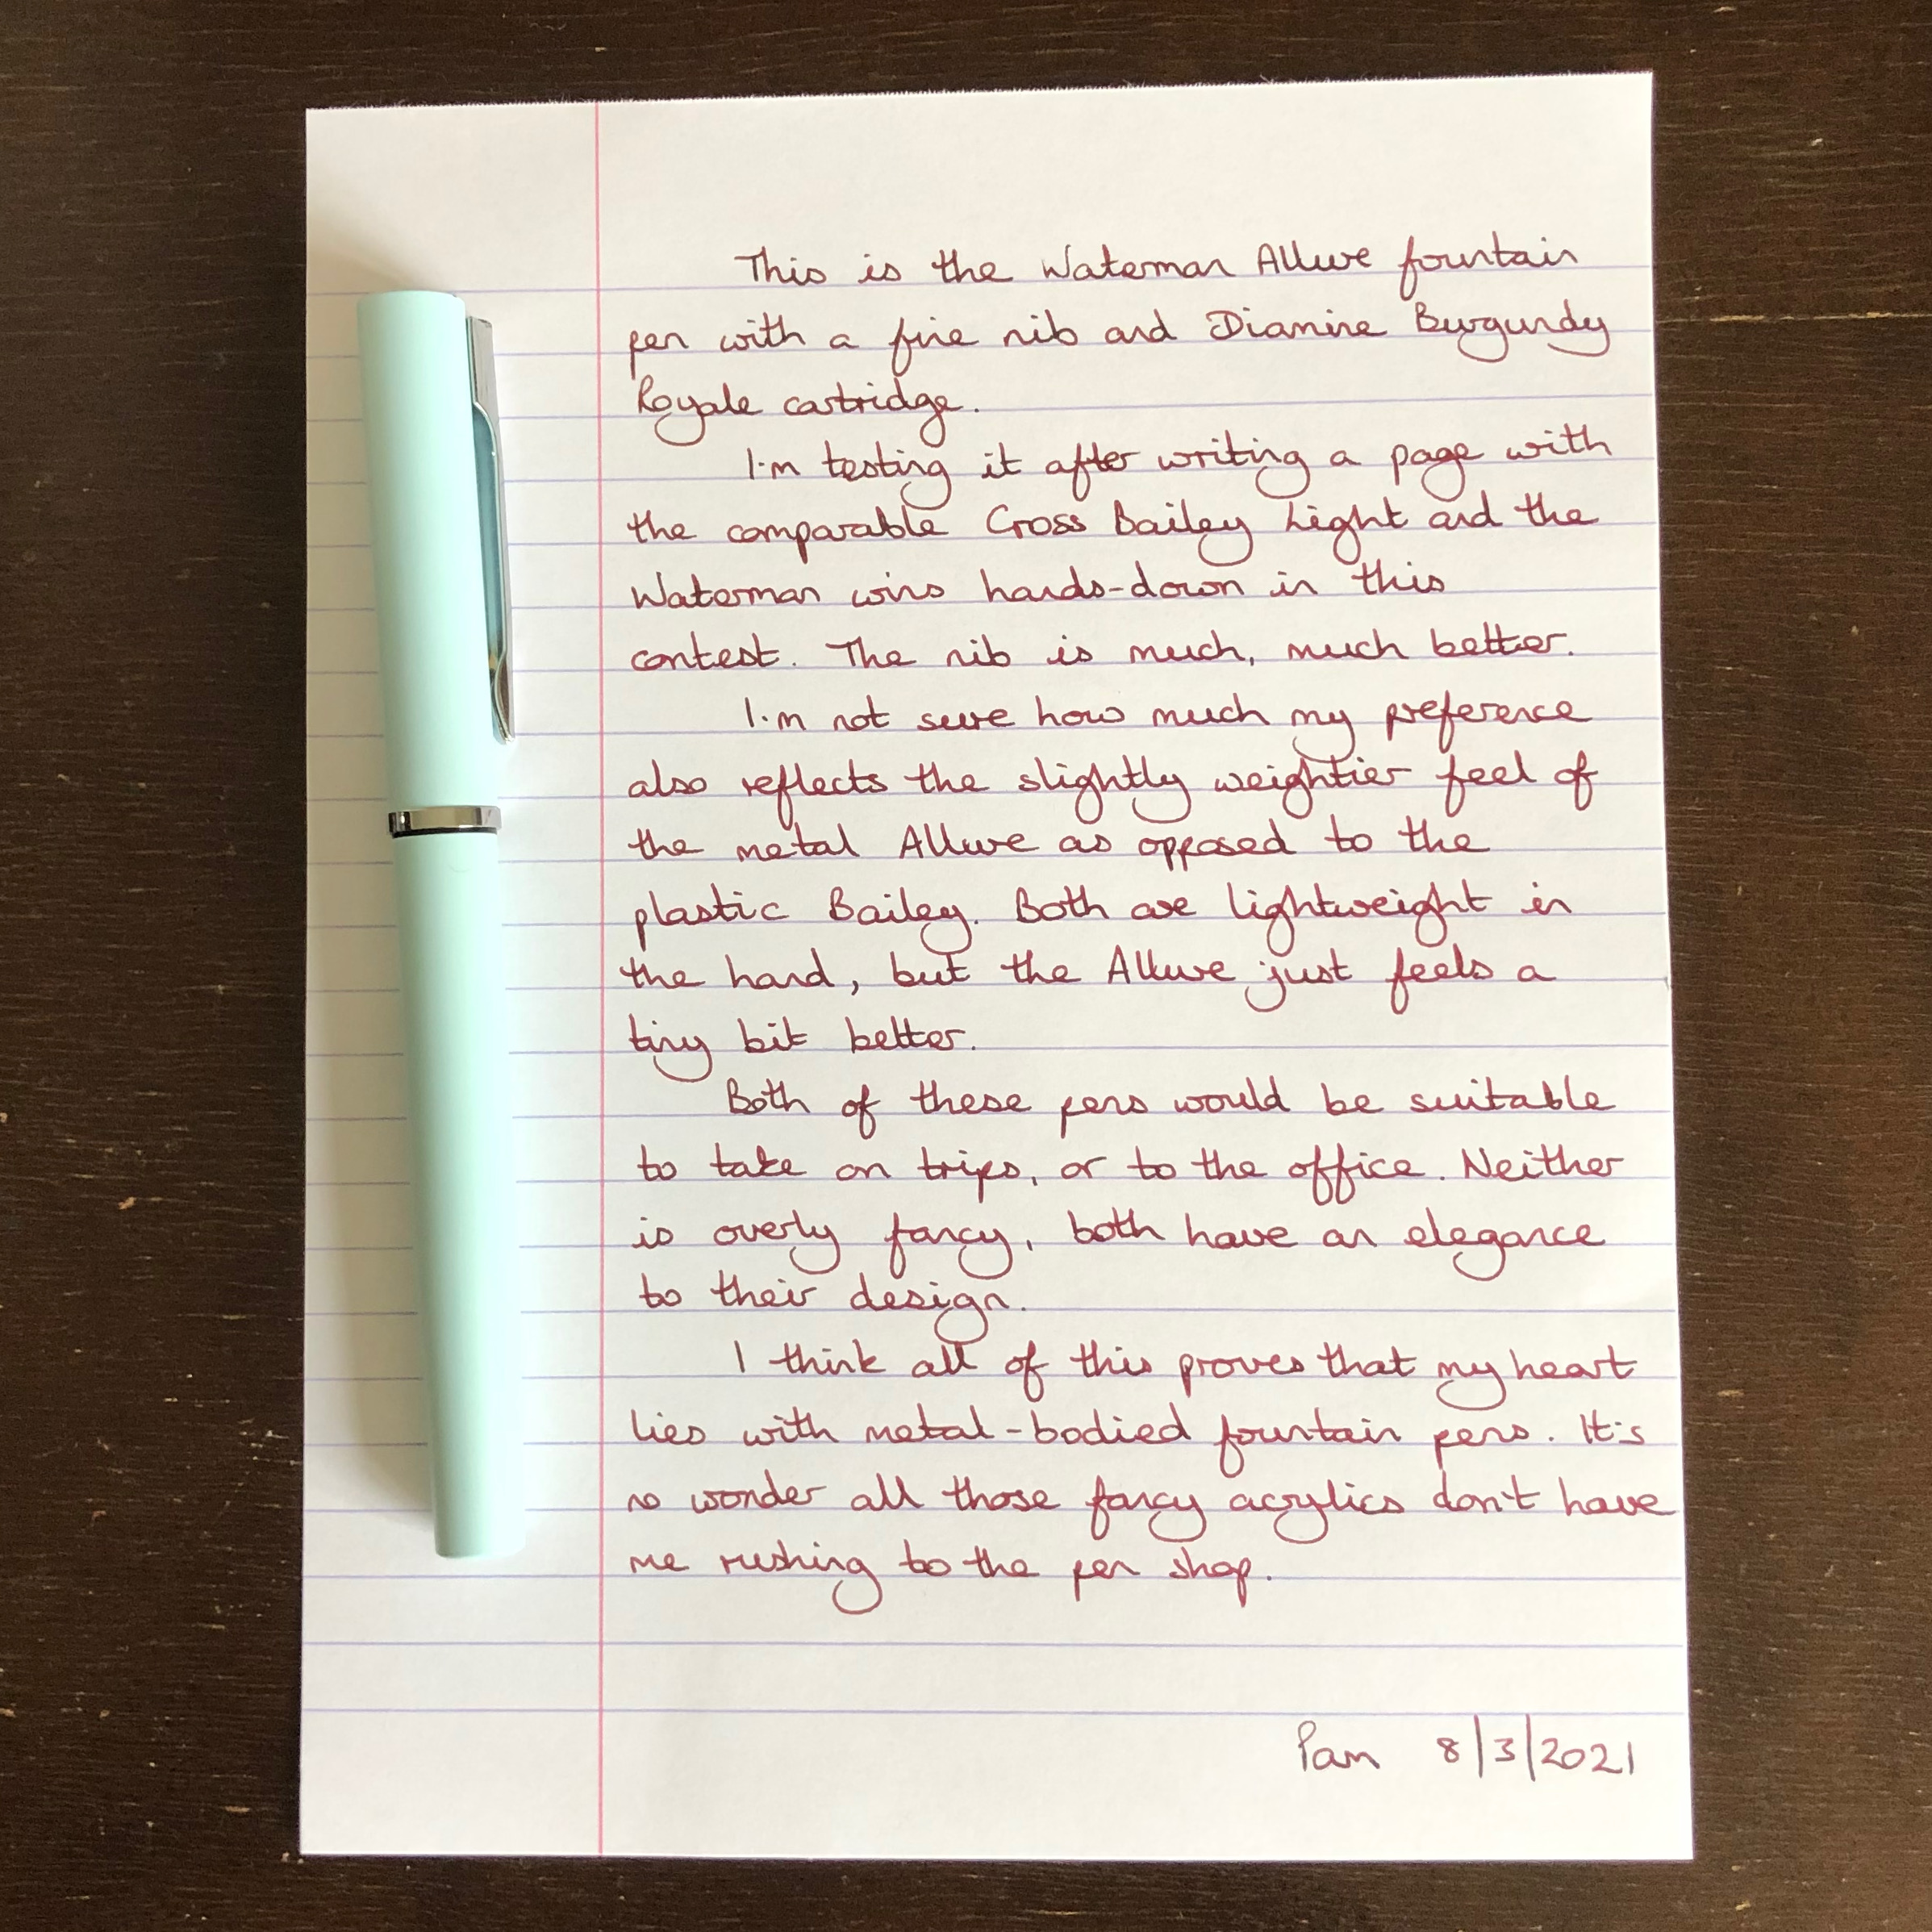 This is the Waterman Allure fountain
pen with a fine nib and Diamine Burgundy
Royale cartridge.
I'm testing it after writing a page with
the comparable Cross Bailey Light and the
Waterman wins hands-down in this
contest. The nib is much, much better.
I'm not sure how much my preference
also reflects the slightly weightier feel of
the metal Allure as opposed to the
plastic Bailey. Both are lightweight in
the hand, but the Allure just feels a
tiny bit better.
Both of these pens would be suitable
to take on trips, or to the office. Neither
is overly fancy, both have an elegance
to their design.
I think all of this proves that my heart
lies with metal-bodied fountain pens. It's
no wonder all those fancy acrylics don't have
me rushing to the pen shop.
Pam 8/3/2021